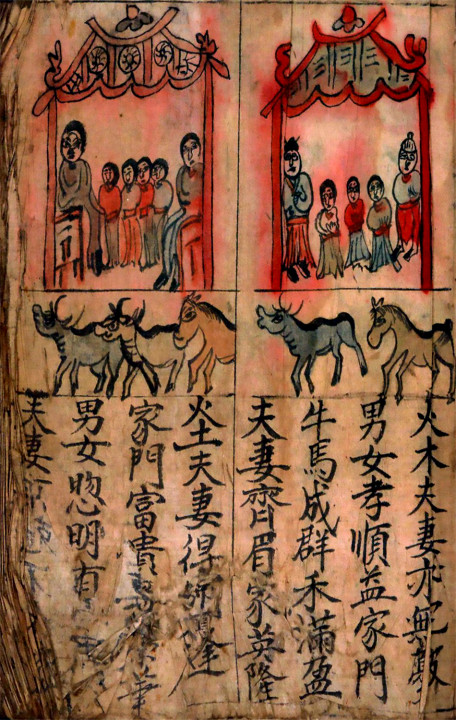 火木夫妻亦
男女孝順益家門
牛馬成群禾滿盈
夫妻齊眉家英隆
火土夫妻得
家門富貴 華
男女惚明有
夫妻